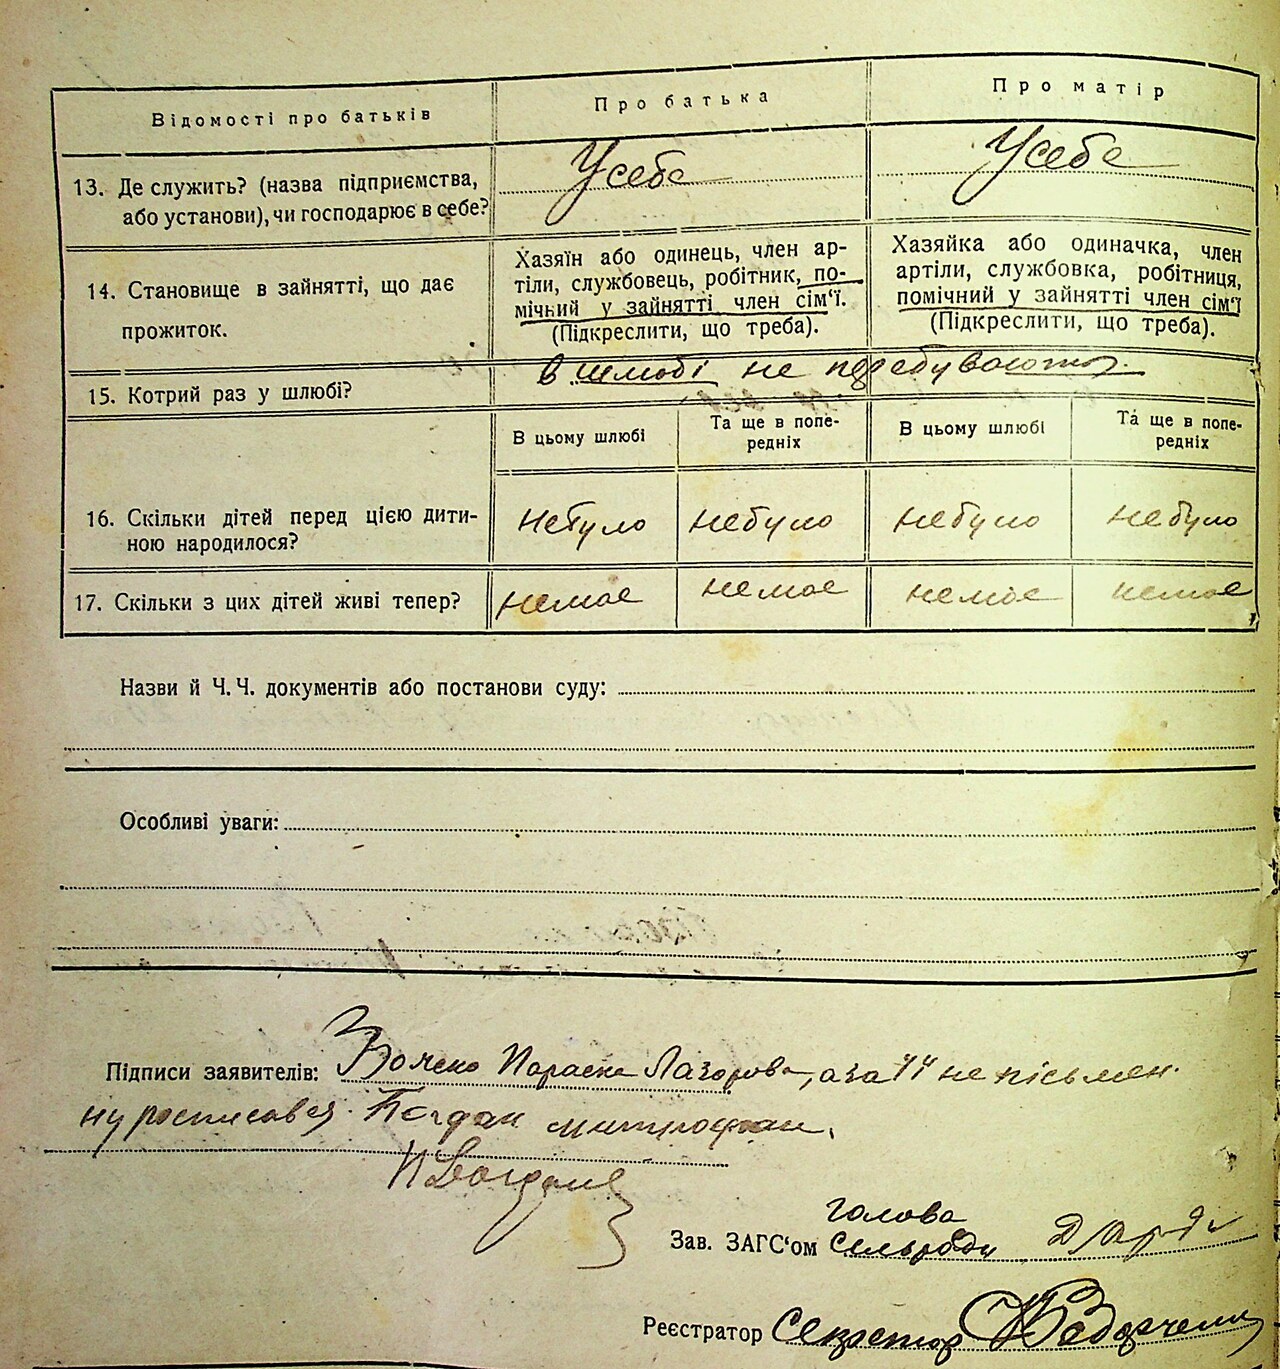 Відомості про батьків
Про батька
Про матір
13. Де служить? (назва підприємства,
або установи), чи господарює в себе?
Усебе
Усебе
14. Становище в зайнятті, що дає
прожиток.
Хазяїн або одинець, член ар-
тіли, службовець, робітник, по-
мічний у зайнятті член сім'ї.
(Підкреслити, що треба).
Хазяйка або одиначка, член
артіли, службовка, робітниця,
помічний у зайнятті член сім'ї
(Підкреслити, що треба).
15. Котрий раз у шлюбі?
в шлюбі не перебувають
В цьому шлюбі
Та ще в попе-
редніх
В цьому шлюбі
Та ще в попе-
редніх
16. Скільки дітей перед цією дити-
ною народилося?
небуло
небуло
небуло
небуло
17. Скільки з цих дітей живі тепер?
немає
немає
немає
немає
Назви й Ч. Ч. документів або постанови суду:
Особливі уваги:
Підписи заявителів: Параска Лазорова, а за її не пісьмен.
ну росписавсь Богдан митрофан.
Богдан
Зав. ЗАГС'ом
голова
Сельради
Реєстратор Секретар